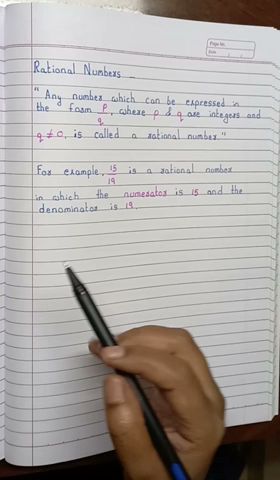 Page No.
Date
Rational Numbers _
" Any number which can be expressed in
the form p/q, where p & q are integers and
q ≠ 0, is called a rational number."
For example, 15/19 is a rational number
in which the numerator is 15 and the
denominator is 19.